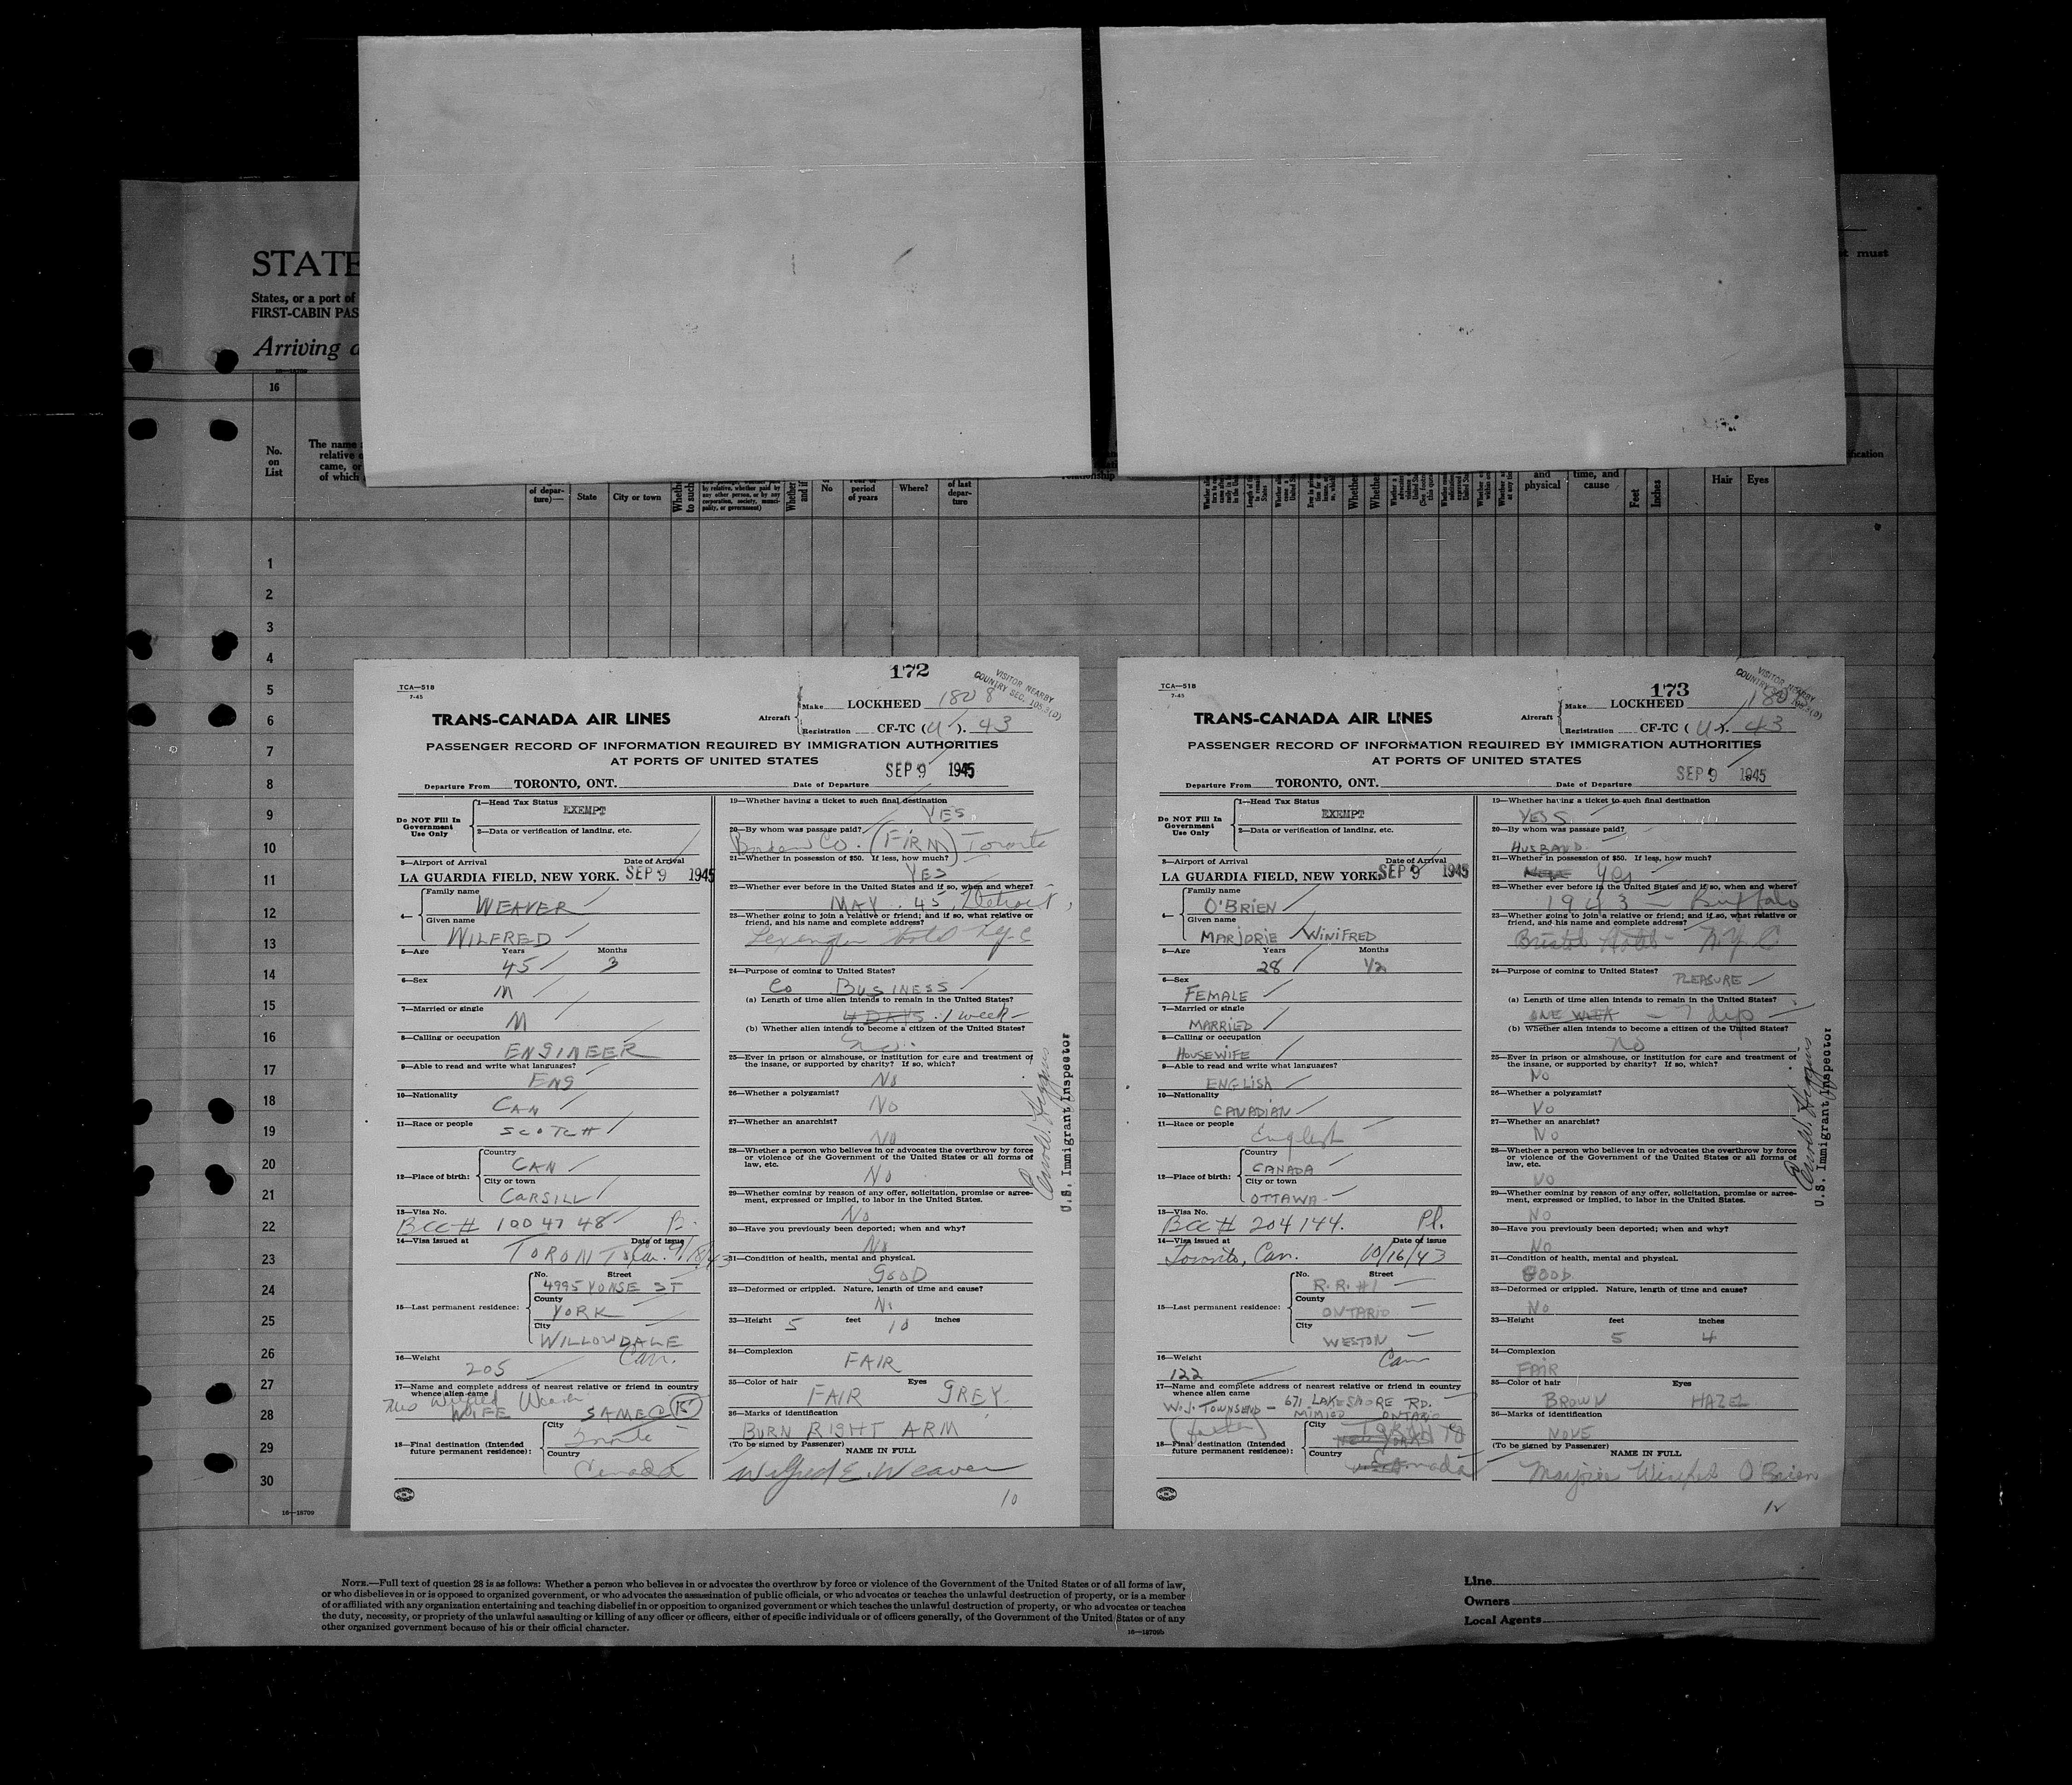 STATE
States, or a port of
FIRST-CABIN PAS
Arriving
must
16
No.
on
List
The name
relative
came, or
of which
of depar-
ture)—
State
City or town
No
period
of years
Where?
of last
depar-
ture
and
physical
time, and
cause
Feet
Inches
Hair
Eyes
1
2
3
4
5
6
7
8
9
10
11
12
13
14
15
16
17
18
19
20
21
22
23
24
25
26
27
28
29
30
16—18709
172
TCA—518
7-45
VISITOR NEARBY
COUNTRY SEC. 105.3(D)
TRANS-CANADA AIR LINES
Aircraft
Make LOCKHEED 1808
Registration CF-TC (U). 43
PASSENGER RECORD OF INFORMATION REQUIRED BY IMMIGRATION AUTHORITIES
AT PORTS OF UNITED STATES
Departure From TORONTO, ONT. Date of Departure SEP 9 1945
Do NOT Fill In
Government
Use Only
1—Head Tax Status EXEMPT
2—Data or verification of landing, etc.
3—Airport of Arrival Date of Arrival
LA GUARDIA FIELD, NEW YORK. SEP 9 1945
4— Family name
WEAVER
Given name
WILFRED
5—Age Years Months
45 3
6—Sex
M
7—Married or single
M
8—Calling or occupation
ENGINEER
9—Able to read and write what languages?
ENG
10—Nationality
CAN
11—Race or people
SCOTCH
12—Place of birth:
Country
CAN
City or town
CARSILL
13—Visa No.
BCC# 1004748
14—Visa issued at Date of issue
TORONTO Can. 9/18/43
15—Last permanent residence:
No. Street
4995 YONSE ST
County
YORK
City
WILLOWDALE
Can.
16—Weight
205
17—Name and complete address of nearest relative or friend in country
whence alien came
Mrs Wilfred Weaver
WIFE SAME @ 15
18—Final destination (Intended
future permanent residence):
City
Toronto
Country
Canada
19—Whether having a ticket to such final destination
YES
20—By whom was passage paid?
Co. (FIRM) Toronto
21—Whether in possession of $50. If less, how much?
YES
22—Whether ever before in the United States and if so, when and where?
MAY. 45, Detroit,
23—Whether going to join a relative or friend; and if so, what relative or
friend, and his name and complete address?
Lexington Hotel NYC
24—Purpose of coming to United States?
Co BUSINESS
(a) Length of time alien intends to remain in the United States?
4 DAYS. 1 week
(b) Whether alien intends to become a citizen of the United States?
no.
25—Ever in prison or almshouse, or institution for care and treatment of
the insane, or supported by charity? If so, which?
No
26—Whether a polygamist?
NO
27—Whether an anarchist?
NO
28—Whether a person who believes in or advocates the overthrow by force
or violence of the Government of the United States or all forms of
law, etc.
NO
29—Whether coming by reason of any offer, solicitation, promise or agree-
ment, expressed or implied, to labor in the United States.
NO
30—Have you previously been deported; when and why?
No
31—Condition of health, mental and physical.
GOOD
32—Deformed or crippled. Nature, length of time and cause?
No
33—Height 5 feet 10 inches
34—Complexion
FAIR
35—Color of hair Eyes
FAIR GREY
36—Marks of identification
BURN RIGHT ARM
(To be signed by Passenger) NAME IN FULL
Wilfred E. Weaver
10
U.S. Immigrant Inspector
173
TCA—518
7-45
VISITOR NEARBY
COUNTRY SEC. 105.3(D)
TRANS-CANADA AIR LINES
Aircraft
Make LOCKHEED 180
Registration CF-TC (U). 43
PASSENGER RECORD OF INFORMATION REQUIRED BY IMMIGRATION AUTHORITIES
AT PORTS OF UNITED STATES
Departure From TORONTO, ONT. Date of Departure SEP 9 1945
Do NOT Fill In
Government
Use Only
1—Head Tax Status EXEMPT
2—Data or verification of landing, etc.
3—Airport of Arrival Date of Arrival
LA GUARDIA FIELD, NEW YORK. SEP 9 1945
4— Family name
O'BRIEN
Given name
MARJORIE WINIFRED
5—Age Years Months
28 1/2
6—Sex
FEMALE
7—Married or single
MARRIED
8—Calling or occupation
HOUSEWIFE
9—Able to read and write what languages?
ENGLISH
10—Nationality
CANADIAN
11—Race or people
English
12—Place of birth:
Country
CANADA
City or town
OTTAWA
13—Visa No.
BCC# 204144. Pl.
14—Visa issued at Date of issue
Toronto, Can. 10/16/43
15—Last permanent residence:
No. Street
R.R. #1
County
ONTARIO
City
WESTON
Can
16—Weight
122
17—Name and complete address of nearest relative or friend in country
whence alien came
W.J. TOWNSEND — 671 LAKESHORE RD.
(father) MIMICO ONTARIO
18—Final destination (Intended
future permanent residence):
City
NEW YORK
Country
Canada
19—Whether having a ticket to such final destination
YES
20—By whom was passage paid?
HUSBAND
21—Whether in possession of $50. If less, how much?
Yes
22—Whether ever before in the United States and if so, when and where?
1943 — Buffalo
23—Whether going to join a relative or friend; and if so, what relative or
friend, and his name and complete address?
Bristol Hotel - N.Y.C.
24—Purpose of coming to United States?
PLEASURE
(a) Length of time alien intends to remain in the United States?
ONE WEEK — 7 dys
(b) Whether alien intends to become a citizen of the United States?
no
25—Ever in prison or almshouse, or institution for care and treatment of
the insane, or supported by charity? If so, which?
No
26—Whether a polygamist?
NO
27—Whether an anarchist?
No
28—Whether a person who believes in or advocates the overthrow by force
or violence of the Government of the United States or all forms of
law, etc.
NO
29—Whether coming by reason of any offer, solicitation, promise or agree-
ment, expressed or implied, to labor in the United States.
NO
30—Have you previously been deported; when and why?
NO
31—Condition of health, mental and physical.
GOOD
32—Deformed or crippled. Nature, length of time and cause?
No
33—Height feet inches
5 4
34—Complexion
FAIR
35—Color of hair Eyes
BROWN HAZEL
36—Marks of identification
NONE
(To be signed by Passenger) NAME IN FULL
Marjorie Winifred O'Brien
U.S. Immigrant Inspector
NOTE.—Full text of question 28 is as follows: Whether a person who believes in or advocates the overthrow by force or violence of the Government of the United States or of all forms of law,
or who disbelieves in or is opposed to organized government, or who advocates the assassination of public officials, or who advocates or teaches the unlawful destruction of property, or is a member
of or affiliated with any organization entertaining and teaching disbelief in or opposition to organized government or which teaches the unlawful destruction of property, or who advocates or teaches
the duty, necessity, or propriety of the unlawful assaulting or killing of any officer or officers, either of specific individuals or of officers generally, of the Government of the United States or of any
other organized government because of his or their official character.
16—18709b
Line
Owners
Local Agents